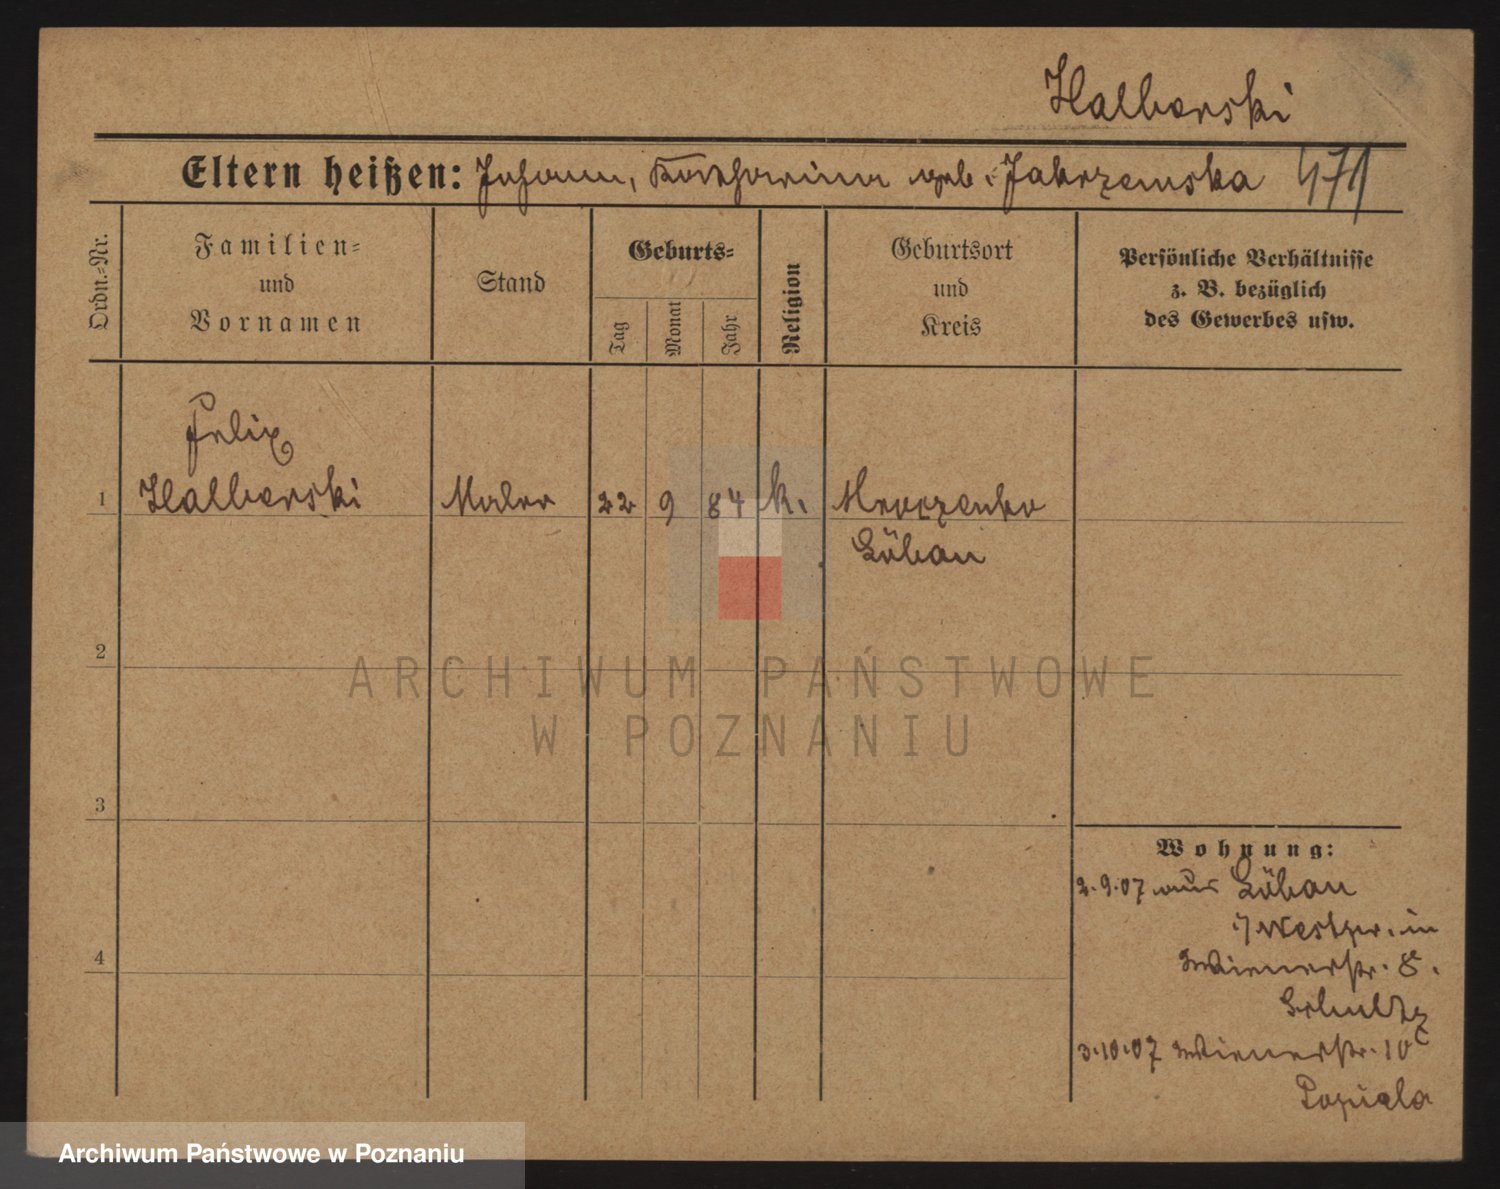 Halberski
Eltern heißen: Johann, Katharina geb. Jabrzemska 471
Ordn.-Nr.
Familien-
und
Vornamen
Stand
Geburts-
Tag
Monat
Jahr
Religion
Geburtsort
und
Kreis
Persönliche Verhältnisse
z. B. bezüglich
des Gewerbes usw.
Felix
1 Halberski Maler 22 9 84 k. Mroczenko
Löbau
2
3
4
Wohnung:
2.9.07 aus Löbau
i/Westpr. in
Wienerstr. 8.
Schultz
3.10.07 Wienerstr. 10
Popiala
ARCHIWUM PAŃSTWOWE
W POZNANIU
Archiwum Państwowe w Poznaniu